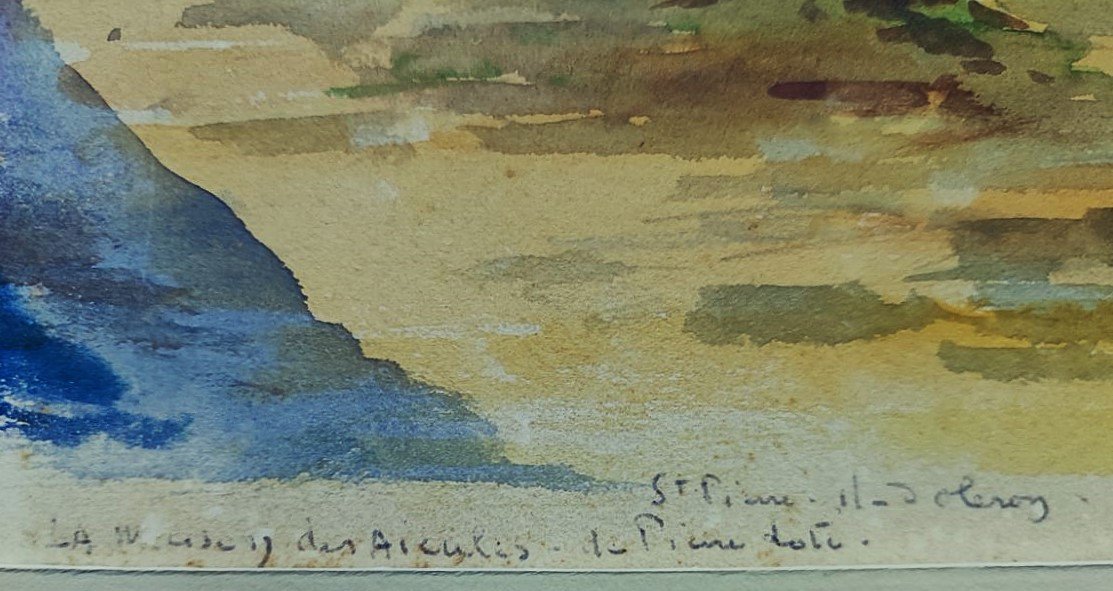 St Pierre. il-d'oleron.
LA Maison des Aieules. de Pierre Loti.